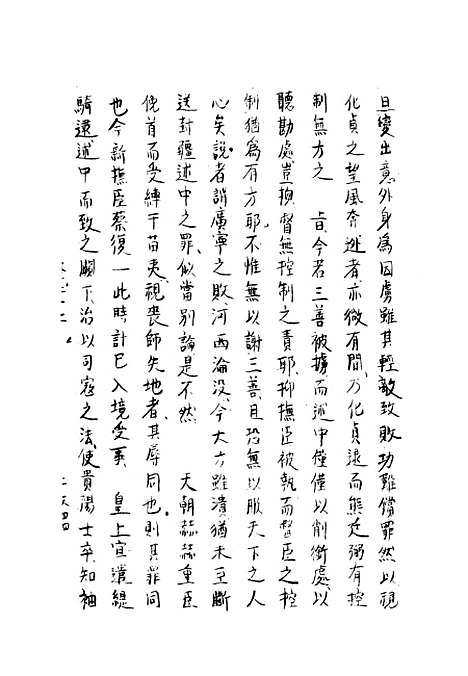 旦變出意外身為囚虜雖其輕敵致敗功難償罪然以視
化貞之望風奔逃者亦微有間乃化貞逮而熊廷弼有控
制無方之　旨今若三善被擄而述中僅僅以削銜處以
聽勘處豈撫督無控制之責耶抑撫臣被執而督臣之控
制猶為有方耶不惟無以謝三善且恐無以服天下之人
心矣說者謂廣寧之敗河西淪没今大方雖潰猶未至斷
送封疆述中之罪似當別論是不然　　天朝赫赫重臣
俛首而受縛于苗夷視喪師失地者其辱同也則其罪同
也今新撫臣蔡復一此時計已入境受事　皇上宜遣緹
騎逮述中而致之闕下治以司寇之法使貴陽士卒知袖
二六四四